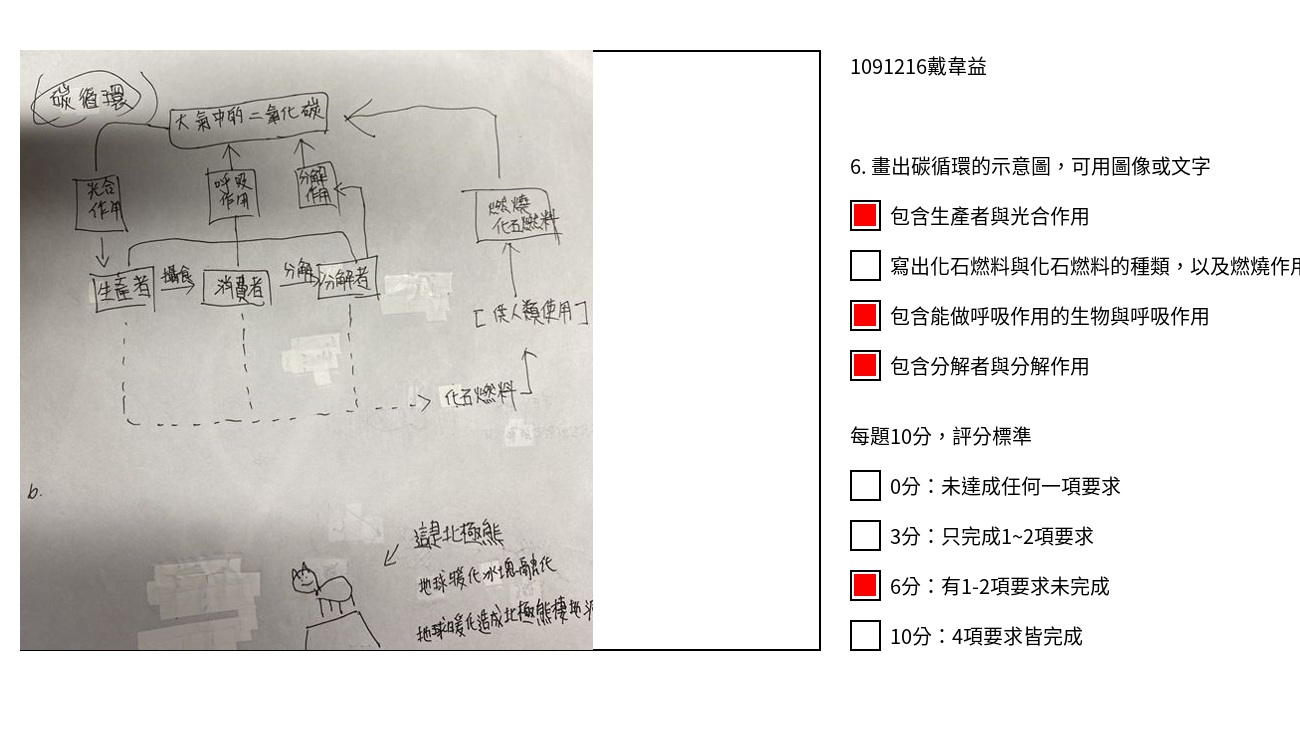 碳循環
大氣中的二氧化碳
光合
作用
呼吸
作用
分解
作用
燃燒
化石燃料
生產者
攝食
消費者
分解
分解者
[供人類使用]
化石燃料
b.
這是北極熊
地球暖化冰塊融化
地球暖化造成北極熊棲地
1091216戴韋益
6. 畫出碳循環的示意圖，可用圖像或文字
包含生產者與光合作用
寫出化石燃料與化石燃料的種類，以及燃燒作用
包含能做呼吸作用的生物與呼吸作用
包含分解者與分解作用
每題10分，評分標準
0分：未達成任何一項要求
3分：只完成1~2項要求
6分：有1-2項要求未完成
10分：4項要求皆完成